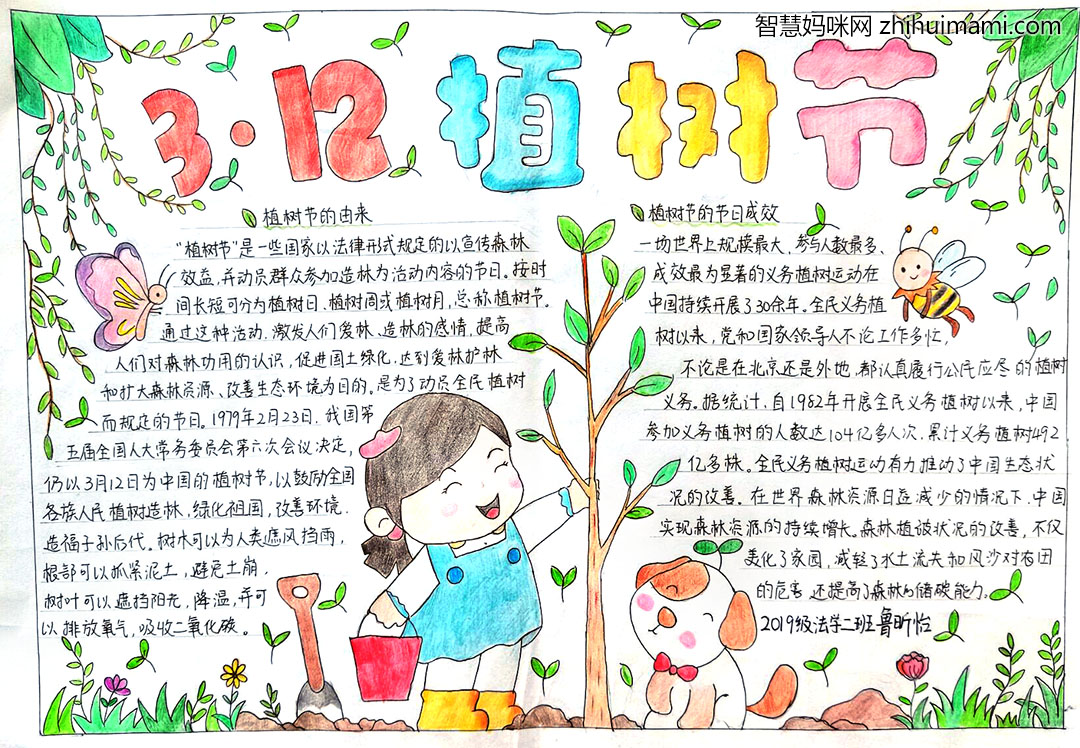 智慧妈咪网 zhihuimami.com
3·12植树节
植树节的由来
“植树节”是一些国家以法律形式规定的以宣传森林
效益,并动员群众参加造林为活动内容的节日。按时
间长短可分为植树日、植树周或植树月,总称植树节。
通过这种活动,激发人们爱林、造林的感情,提高
人们对森林功用的认识,促进国土绿化,达到爱林护林
和扩大森林资源、改善生态环境为目的。是为了动员全民植树
而规定的节日。1979年2月23日,我国第
五届全国人大常务委员会第六次会议决定,
仍以3月12日为中国的植树节,以鼓励全国
各族人民植树造林,绿化祖国,改善环境,
造福子孙后代。树木可以为人类遮风挡雨,
根部可以抓紧泥土,避免土崩,
树叶可以遮挡阳光,降温,并可
以排放氧气,吸收二氧化碳。
植树节的节日成效
一场世界上规模最大,参与人数最多、
成效最为显著的义务植树运动在
中国持续开展了30余年。全民义务植
树以来,党和国家领导人不论工作多忙,
不论是在北京还是外地,都认真履行公民应尽的植树
义务。据统计,自1982年开展全民义务植树以来,中国
参加义务植树的人数达104亿多人次,累计义务植树492
亿多株。全民义务植树运动有力推动了中国生态状
况的改善。在世界森林资源日益减少的情况下,中国
实现森林资源的持续增长。森林植被状况的改善,不仅
美化了家园,减轻了水土流失和风沙对农田
的危害,还提高了森林的储碳能力。
2019级法学二班鲁昕怡